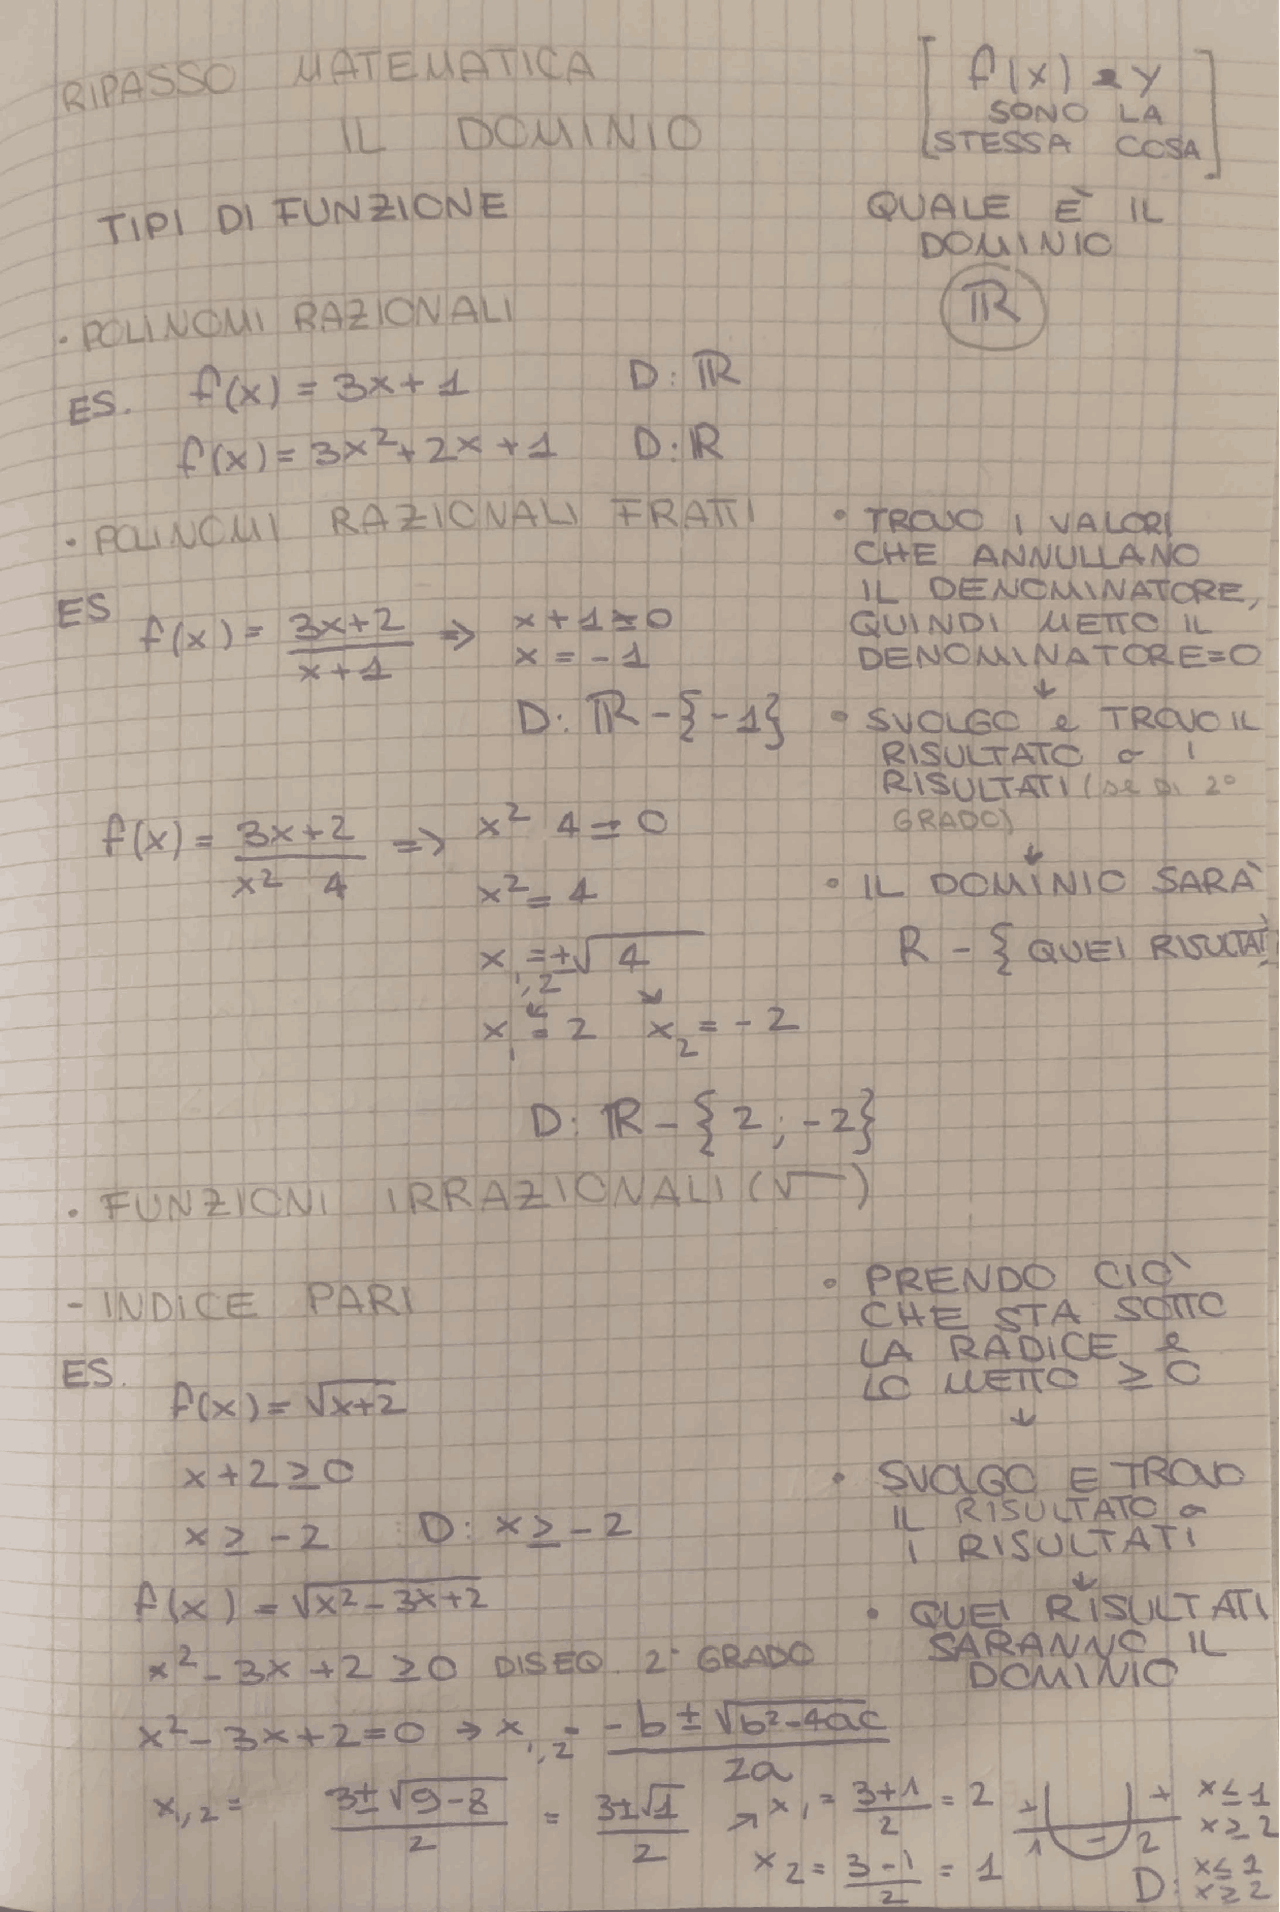 RIPASSO MATEMATICA
IL DOMINIO
[f(x) e y
SONO LA
STESSA COSA]
TIPI DI FUNZIONE
QUALE È IL
DOMINIO
ℝ
· POLINOMI RAZIONALI
ES. f(x) = 3x + 1 D: ℝ
f(x) = 3x² + 2x + 1 D: ℝ
· POLINOMI RAZIONALI FRATTI
• TROVO I VALORI
CHE ANNULLANO
IL DENOMINATORE,
QUINDI METTO IL
DENOMINATORE=0
↓
• SVOLGO e TROVO IL
RISULTATO o I
RISULTATI (se di 2°
GRADO)
↓
• IL DOMINIO SARÀ
R - { QUEI RISULTATI
ES f(x) = (3x+2)/(x+1) => x + 1 = 0
x = -1
D: ℝ - {-1}
f(x) = (3x+2)/(x² 4) => x² 4 = 0
x² = 4
x₁,₂ = ±√4
x₁ = 2 x₂ = -2
D: ℝ - {2; -2}
· FUNZIONI IRRAZIONALI (√ )
- INDICE PARI
• PRENDO CIÒ
CHE STA SOTTO
LA RADICE e
LO METTO ≥ 0
↓
• SVOLGO E TROVO
IL RISULTATO o
I RISULTATI
↓
• QUEI RISULTATI
SARANNO IL
DOMINIO
ES.
f(x) = √(x+2)
x + 2 ≥ 0
x ≥ -2 D: x ≥ -2
f(x) = √(x² - 3x + 2)
x² - 3x + 2 ≥ 0 DISEQ. 2° GRADO
x² - 3x + 2 = 0 → x₁,₂ = (-b ± √(b²-4ac))/2a
x₁,₂ = (3 ± √(9-8))/2 = (3 ± √1)/2 → x₁ = (3+1)/2 = 2
x₂ = (3-1)/2 = 1
+ - +
1 2
x ≤ 1
x ≥ 2
D: x ≤ 1
x ≥ 2